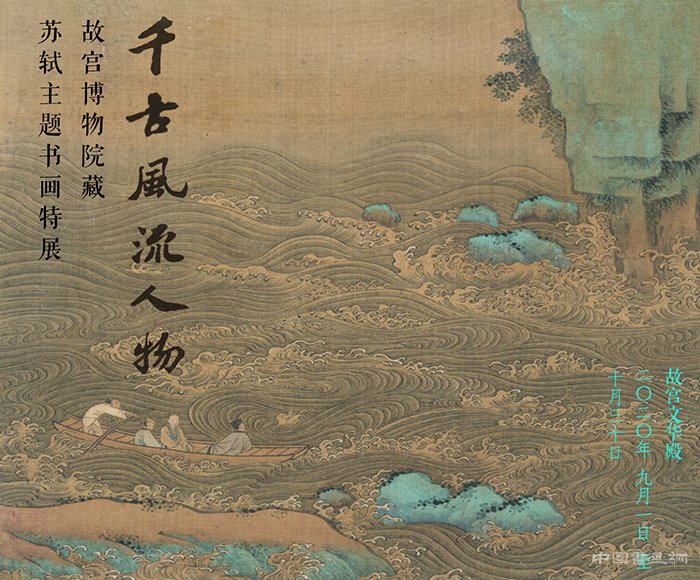 千古風流人物
故宫博物院藏
苏轼主题书画特展
故宫文华殿
二〇二〇年 九月一日 至
十月三十日